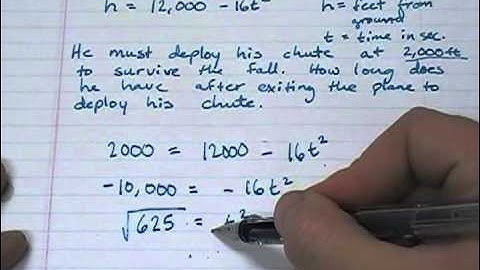 h = 12,000 - 16t² h = feet from
ground
t = time in sec.
He must deploy his chute at 2,000 ft
to survive the fall. How long does
he have after exiting the plane to
deploy his chute.
2000 = 12000 - 16t²
-10,000 = -16t²
√625 = t²